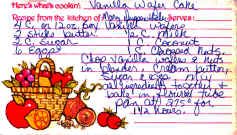 Here's what's cookin' Vanilla Wafer Cake
Recipe from the kitchen of
1 12 oz. box Vanilla Wafers
2 sticks butter ½ C. Milk
2 C. Sugar Coconut
6 Eggs C. Chopped Nuts.
Chop vanilla wafers & nuts
in blender. Cream butter,
sugar & eggs. Mix
all ingredients together &
bake in floured tube
pan at 275° for
1½ hours.